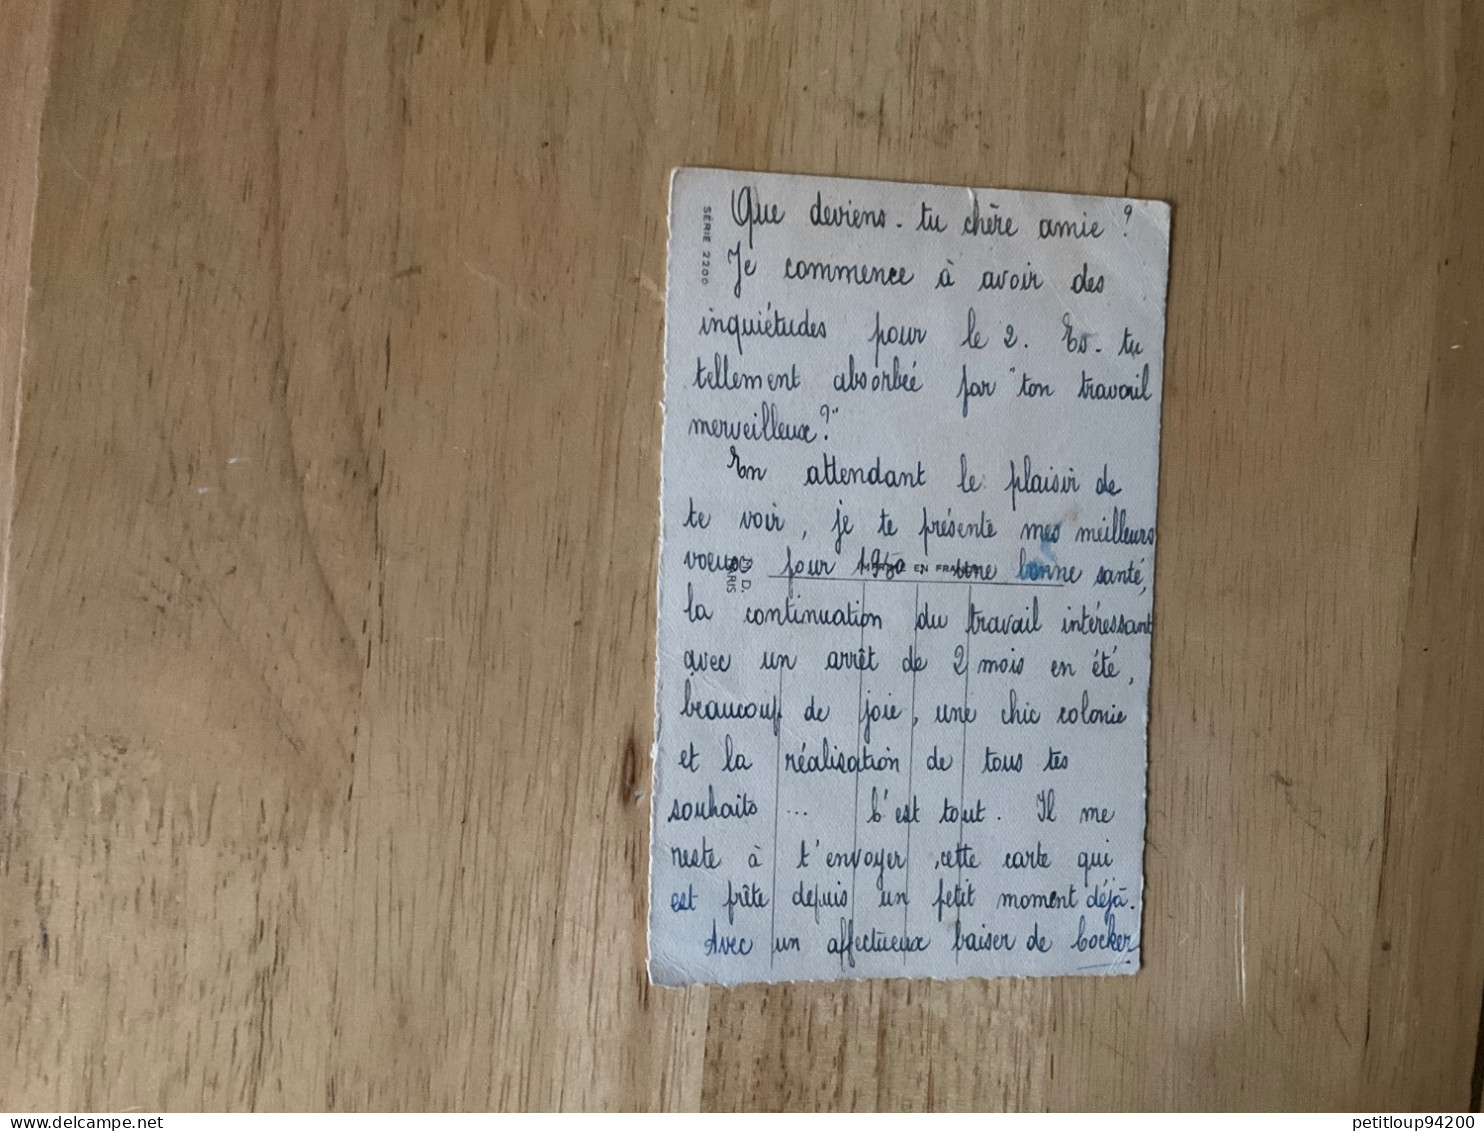 SÉRIE 2200
Que deviens-tu chère amie ?
Je commence à avoir des
inquiétudes pour le 2. Es-tu
tellement absorbée par "ton travail
merveilleux ?"
En attendant le plaisir de
te voir, je te présente mes meilleurs
voeux pour 1950 une bonne santé,
la continuation du travail intéressant
avec un arrêt de 2 mois en été,
beaucoup de joie, une chic colonie
et la réalisation de tous tes
souhaits ... C'est tout. Il me
reste à t'envoyer cette carte qui
est prête depuis un petit moment déjà.
Avec un affectueux baiser de Cocker
EN FRANCE
D.
PARIS
petitloup94200